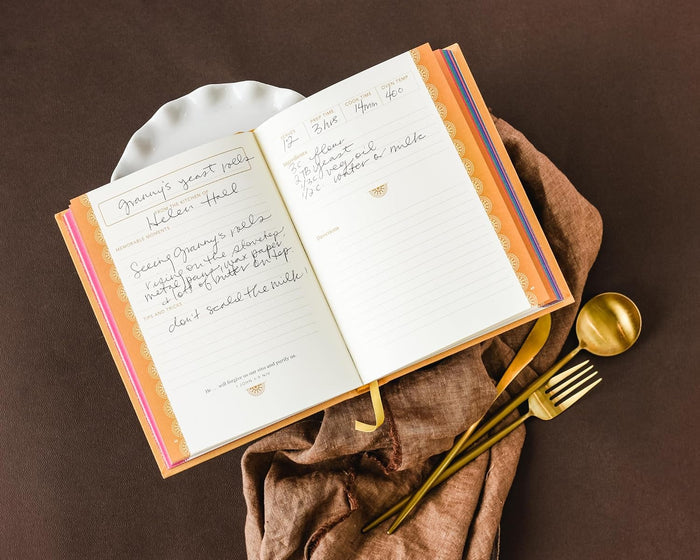 Granny's yeast rolls
FROM THE KITCHEN OF
Helen Hall
MEMORABLE MOMENTS
Seeing Granny's rolls
rising on the stovetop,
metal pans, wax paper
& lot of butter on top
TIPS AND TRICKS
don't scald the milk!
He ... will forgive us our sins and purify us.
1 JOHN 1:9 NIV
PREP TIME
COOK TIME
OVEN TEMP
12
3 hrs
14 min
400
Ingredients
3c. flour
yeast
veg oil
1/2c. water or milk
Directions